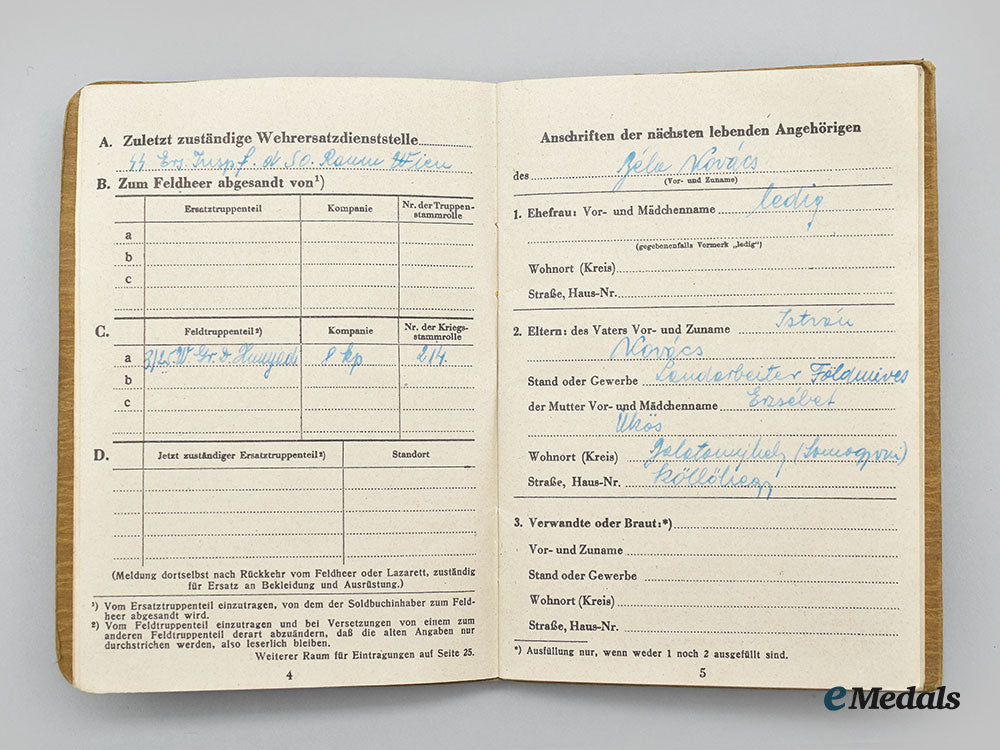 A. Zuletzt zuständige Wehrersatzdienststelle
SS Ers. Insp. f. d SO. Raum Wien
B. Zum Feldheer abgesandt von¹)
Ersatztruppenteil Kompanie Nr. der Truppen-
stammrolle
a
b
c
C. Feldtruppenteil²) Kompanie Nr. der Kriegs-
stammrolle
a Gr. D. 8 Kp 214.
b
c
D. Jetzt zuständiger Ersatztruppenteil²) Standort
(Meldung dortselbst nach Rückkehr vom Feldheer oder Lazarett, zuständig
für Ersatz an Bekleidung und Ausrüstung.)
¹) Vom Ersatztruppenteil einzutragen, von dem der Soldbuchinhaber zum Feld-
heer abgesandt wird.
²) Vom Feldtruppenteil einzutragen und bei Versetzungen von einem zum
anderen Feldtruppenteil derart abzuändern, daß die alten Angaben nur
durchstrichen werden, also leserlich bleiben.
Weiterer Raum für Eintragungen auf Seite 25.
4
Anschriften der nächsten lebenden Angehörigen
des Béla Kovács
(Vor- und Zuname)
1. Ehefrau: Vor- und Mädchenname ledig
(gegebenenfalls Vermerk „ledig“)
Wohnort (Kreis)
Straße, Haus-Nr.
2. Eltern: des Vaters Vor- und Zuname István
Kovács
Stand oder Gewerbe Landarbeiter Földmives
der Mutter Vor- und Mädchenname Erzsébet
Wohnort (Kreis)
Straße, Haus-Nr.
3. Verwandte oder Braut:*)
Vor- und Zuname
Stand oder Gewerbe
Wohnort (Kreis)
Straße, Haus-Nr.
*) Ausfüllung nur, wenn weder 1 noch 2 ausgefüllt sind.
5
eMedals